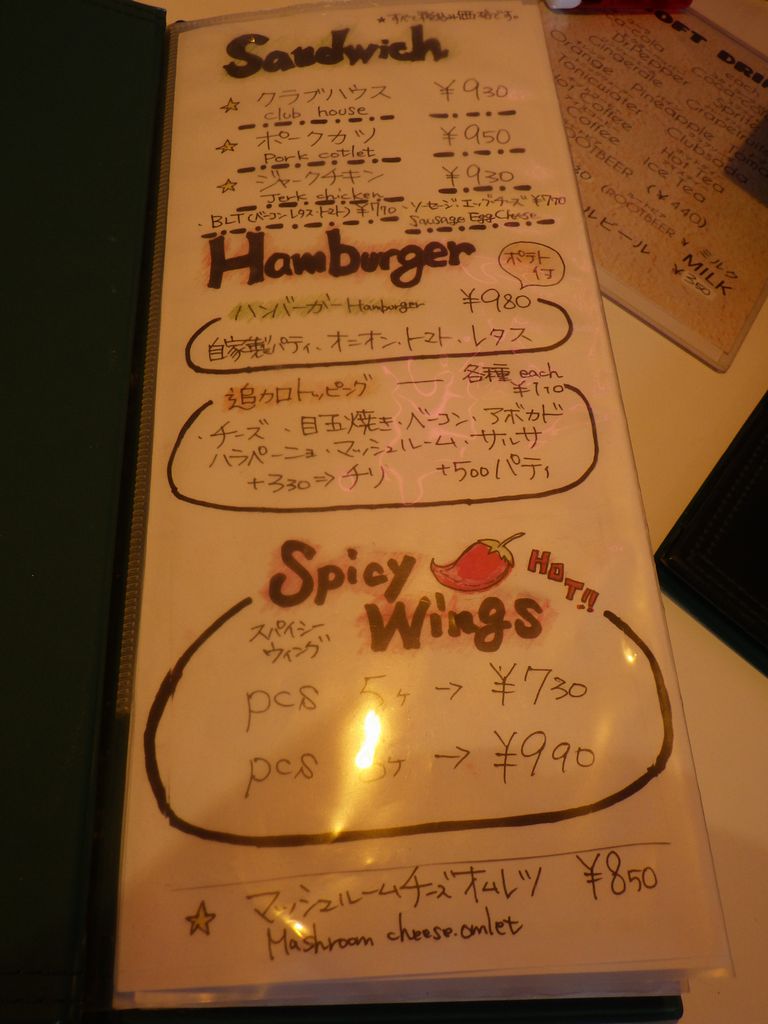 ★すべて税込み価格です。
Sandwich
☆ クラブハウス ¥930
club house
☆ ポークカツ ¥950
Pork cotlet
☆ ジャークチキン ¥930
Jerk chicken
・BLT(ベーコン・レタス・トマト) ¥770 ・ソーセージ・エッグ・チーズ ¥770
Sausage Egg Cheese
Hamburger
ポテト付
ハンバーガー Hamburger ¥980
自家製パティ、オニオン、トマト、レタス
追加トッピング — 各種 each
¥110
・チーズ・目玉焼き・ベーコン・アボカド
ハラペーニョ・マッシュルーム・サルサ
+330⇒チリ +500パティ
Spicy Wings
HOT!!
スパイシーウィング
pcs 5ヶ → ¥730
pcs ヶ → ¥990
☆ マッシュルームチーズオムレツ ¥850
Mashroom cheese.omlet
OFT DRI
DrPepper
Gingerale
Orange
Tonicwater
Pineapple
Coffee
Hot Tea
Ice Tea
Clubsoda
ROOTBEER (¥440)
(ROOTBEER
ルービール
ミルク
MILK
¥350